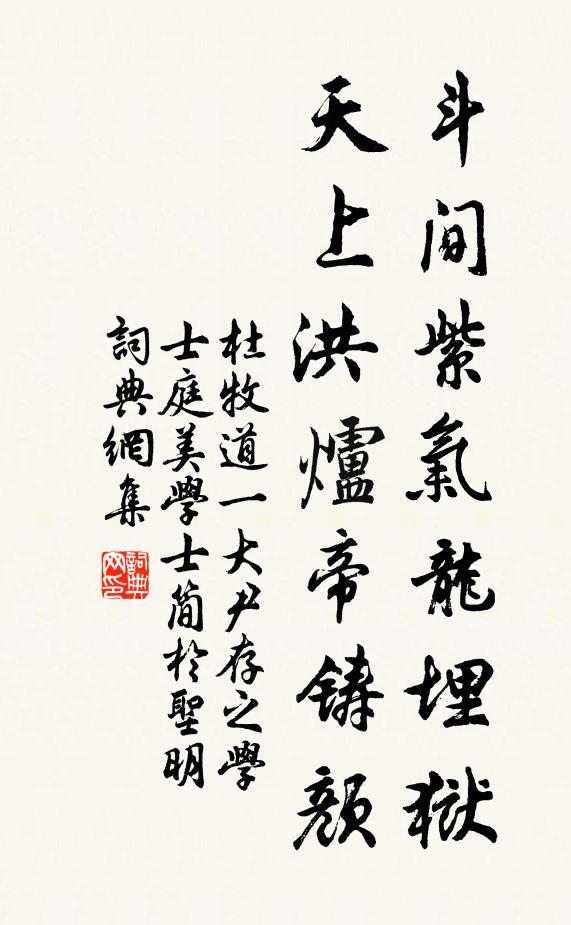 斗间紫氣龍埋獄
天上洪爐帝铸顏
杜牧道一大尹存之學
士庭美學士简於聖明
詞典網集
詞典
网印